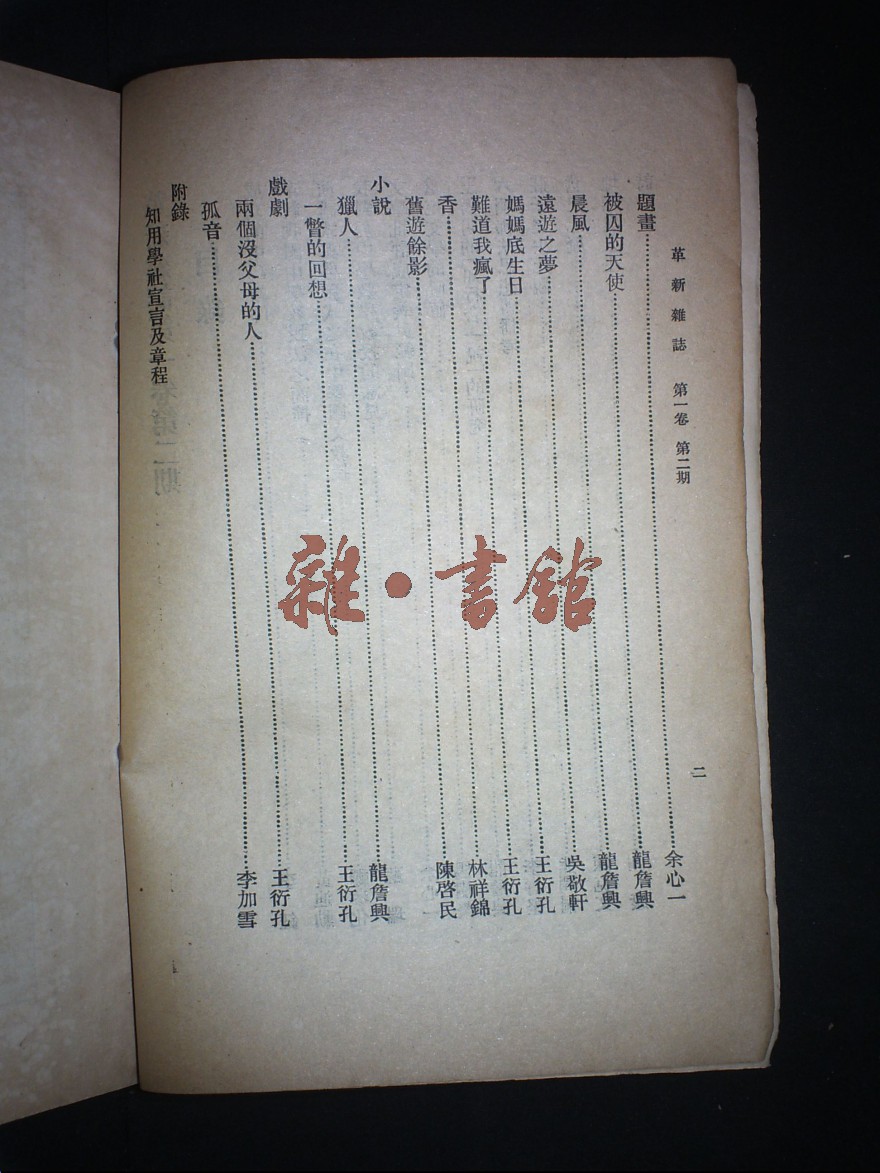 革新雜誌 第一卷 第二期 二
題畫……余心一
被囚的天使……龍詹興
晨風……龍詹興
遠遊之夢……吳敬軒
媽媽底生日……王衍孔
難道我瘋了……王衍孔
香……林祥錦
舊遊餘影……陳啓民
小說
獵人……龍詹興
一瞥的回想……王衍孔
戲劇
兩個沒父母的人……王衍孔
孤音……李加雪
附錄
知用學社宣言及章程
雜·書館